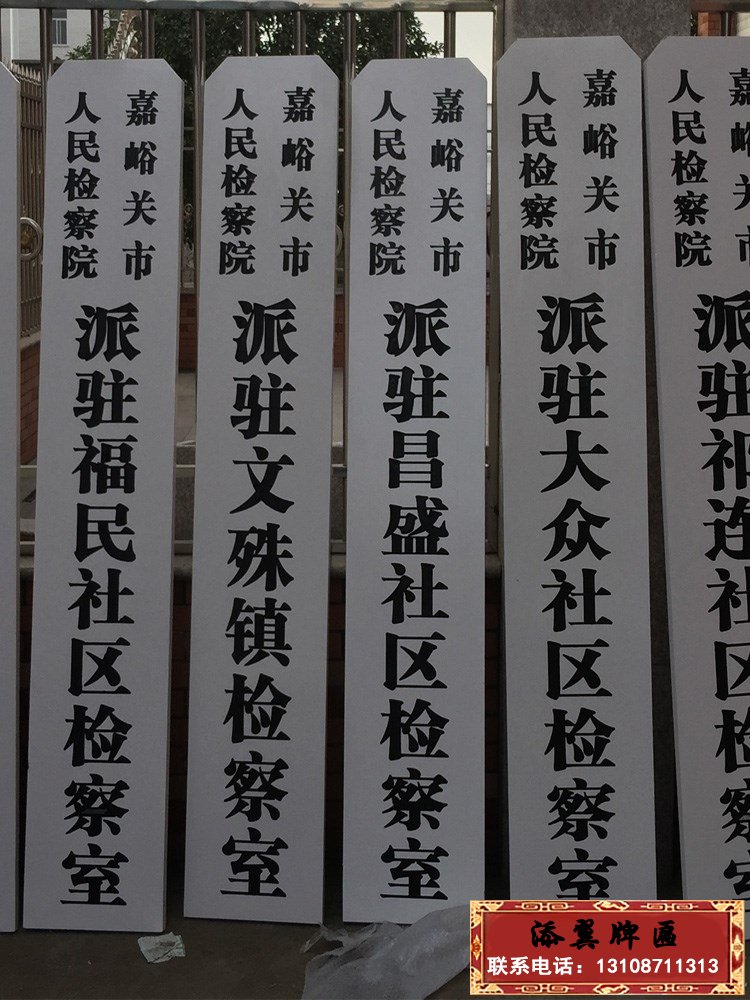 嘉峪关市
人民检察院
派驻福民社区检察室
嘉峪关市
人民检察院
派驻文殊镇检察室
嘉峪关市
人民检察院
派驻昌盛社区检察室
嘉峪关市
人民检察院
派驻大众社区检察室
嘉峪关市
人民检察院
派驻祁连社区检察室
添翼牌匾
联系电话：13108711313